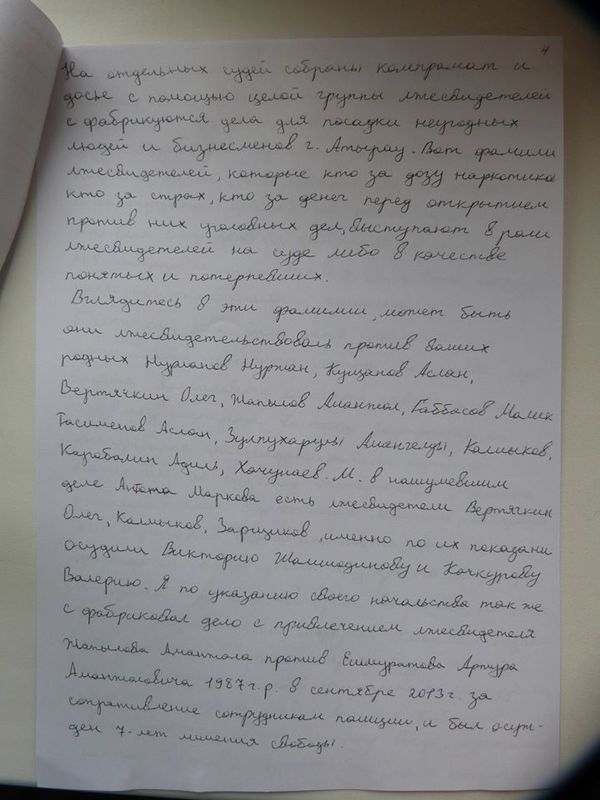 4
На отдельных судей собраны компрамат и
досье с помощью целой группы лжесвидетелей
с фабрикуются дела для посадки неугодных
людей и бизнесменов г. Атырау. Вот фамилии
лжесвидетелей, которые кто за дозу наркотика
кто за страх, кто за денег перед открытием
против них уголовных дел, выступают в роли
лжесвидетелей на суде либо в качестве
понятых и потерпевших.
Вглядитесь в эти фамилии, может быть
они лжесвидетельствовали против ваших
родных Нурланов Нуржан, Кущапов Аслан,
Вертячкин Олег, Жапылов Амантол, Габбасов Малик
Тасименов Аслан, Зулпухарулы Амангелды, Калмыков,
Карабалин Адиль, Хачунаев. М. в нашумевшим
деле Антона Маркова есть лжесвидетели Вертячкин
Олег, Калмыков, Зарщиков, именно по их показани
осудили Викторию Шамшодинову и Качкурову
Валерию. Я по указанию своего начальства так же
с фабриковал дело с привлечением лжесвидетеля
Жапылова Амантола против Ешмуратова Артура
Амантоловича 1987 г.р. в сентябре 2013 г. за
сопративление сотрудникам полиции, и был осуж-
ден 7-лет лишения свободы.